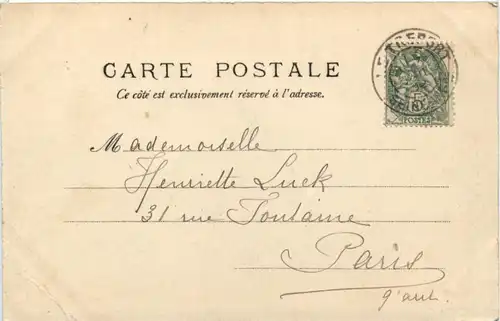 CARTE POSTALE
Ce côté est exclusivement réservé à l'adresse.
LE TREPORT
POSTES
Mademoiselle
Henriette Luck
31 rue Fontaine
Paris